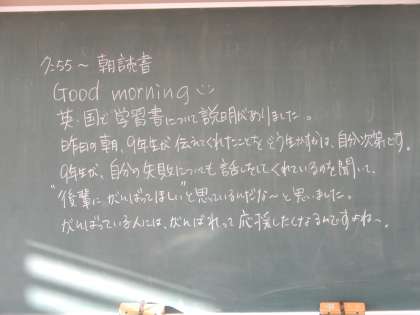 7:55～ 朝読書
Good morning
英・国と学習書について説明がありました。
昨日の朝、9年生が伝えてくれたことをどう生かすかは、自分次第です。
9年生が、自分の失敗についても話をしてくれているのを聞いて、
"後輩に、がんばってほしい"と思っているんだな～と思いました。
がんばっている人には、がんばれって応援したくなるんですよね～。